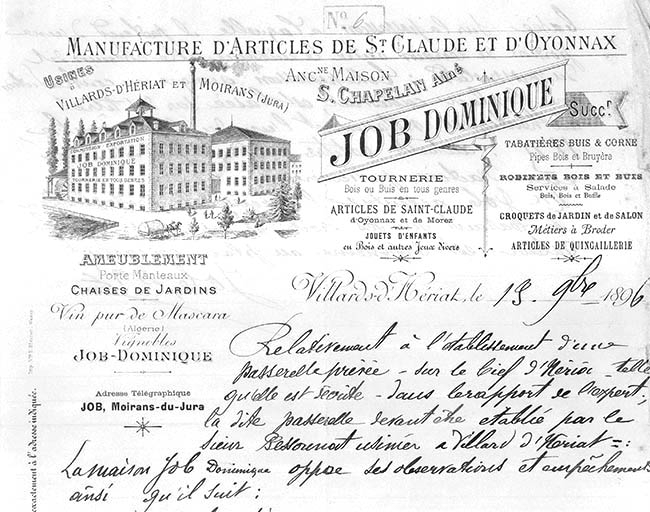 No. 6
MANUFACTURE D'ARTICLES DE ST CLAUDE ET D'OYONNAX
USINES
à
VILLARDS-D'HÉRIAT ET MOIRANS (JURA)
COMMISSION EXPORTATION
JOB DOMINIQUE
TOURNERIE EN TOUS GENRES
ANCNE MAISON
S. CHAPELAN Aîné
JOB DOMINIQUE
Succr
TOURNERIE
Bois ou Buis en tous genres
ARTICLES DE SAINT-CLAUDE
d'Oyonnax et de Morez
JOUETS D'ENFANTS
en Bois et autres Jeux divers
TABATIÈRES BUIS & CORNE
Pipes Bois et Bruyère
ROBINETS BOIS ET BUIS
Services à Salade
Buis, Bois et Buffle
CROQUETS DE JARDIN ET DE SALON
Métiers à Broder
ARTICLES DE QUINCAILLERIE
AMEUBLEMENT
Porte Manteaux
CHAISES DE JARDINS
Vin pur de Mascara
(Algérie)
Vignobles
JOB-DOMINIQUE
Adresse Télégraphique
JOB, Moirans-du-Jura
exactement à l'adresse indiquée.
Villards-d'Hériat, le 13 9bre 1896
Relativement à l'établissement d'une
passerelle privée - sur le bief d'Héria - telle
qu'elle est décrite - dans le rapport de l'expert;
la dite passerelle devant être établie par le
sieur usinier à Villard d'Hériat =:
La maison Job Dominique oppose ses observations et empêchements
ainsi qu'il suit: